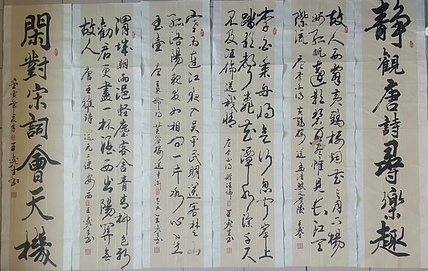 静觀唐詩尋樂趣
故人西辭黄鶴樓烟花三月下揚
州孤帆遠影碧空盡惟見長江天
際流
李白乘舟将欲行忽聞岸上
踏歌聲桃花潭水深千尺
不及汪倫送我情
寒雨連江夜入吴平明送客楚山
孤洛陽親友如相問一片冰心在
玉壺
渭城朝雨浥輕塵客舍青青柳色新
勸君更盡一杯酒西出陽關無
故人 唐王維詩送元二使安西
閑對宋詞會天機